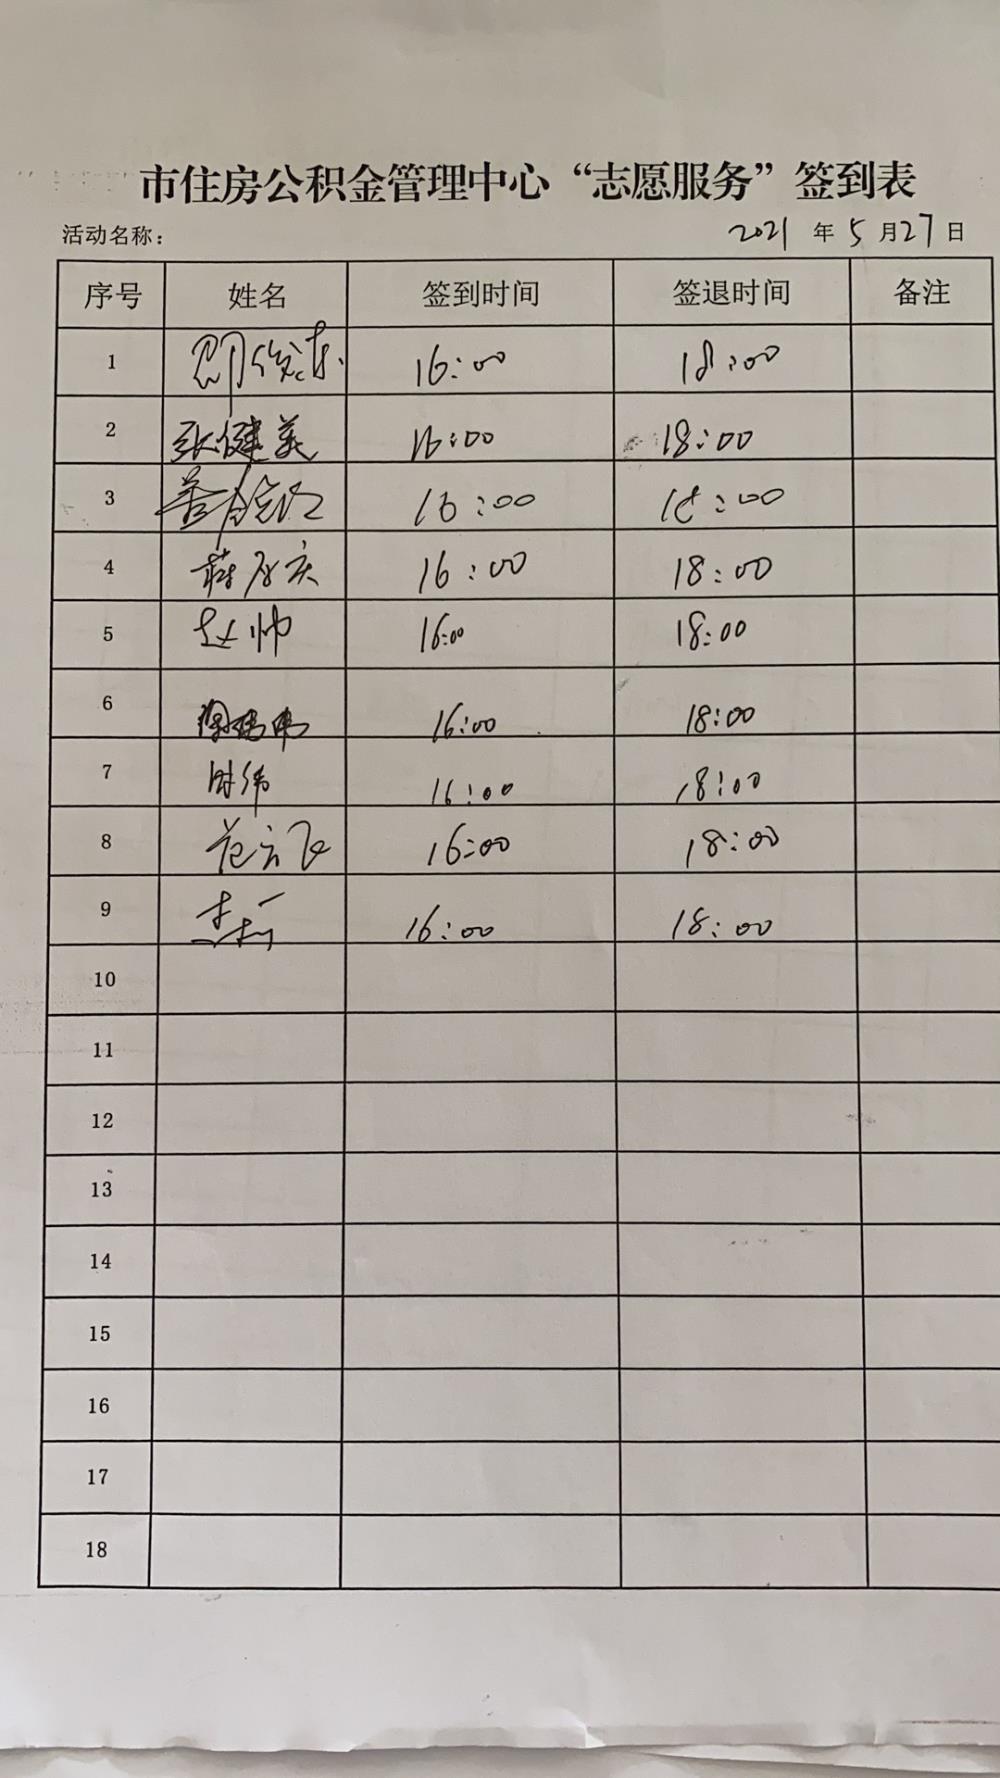 市住房公积金管理中心“志愿服务”签到表
活动名称： 2021 年 5 月 27 日
序号 姓名 签到时间 签退时间 备注
1 16:00 18:00
2 张健美 16:00 18:00
3 16:00 18:00
4 16:00 18:00
5 赵帅 16:00 18:00
6 16:00 18:00
7 时伟 16:00 18:00
8 范云飞 16:00 18:00
9 16:00 18:00
10
11
12
13
14
15
16
17
18